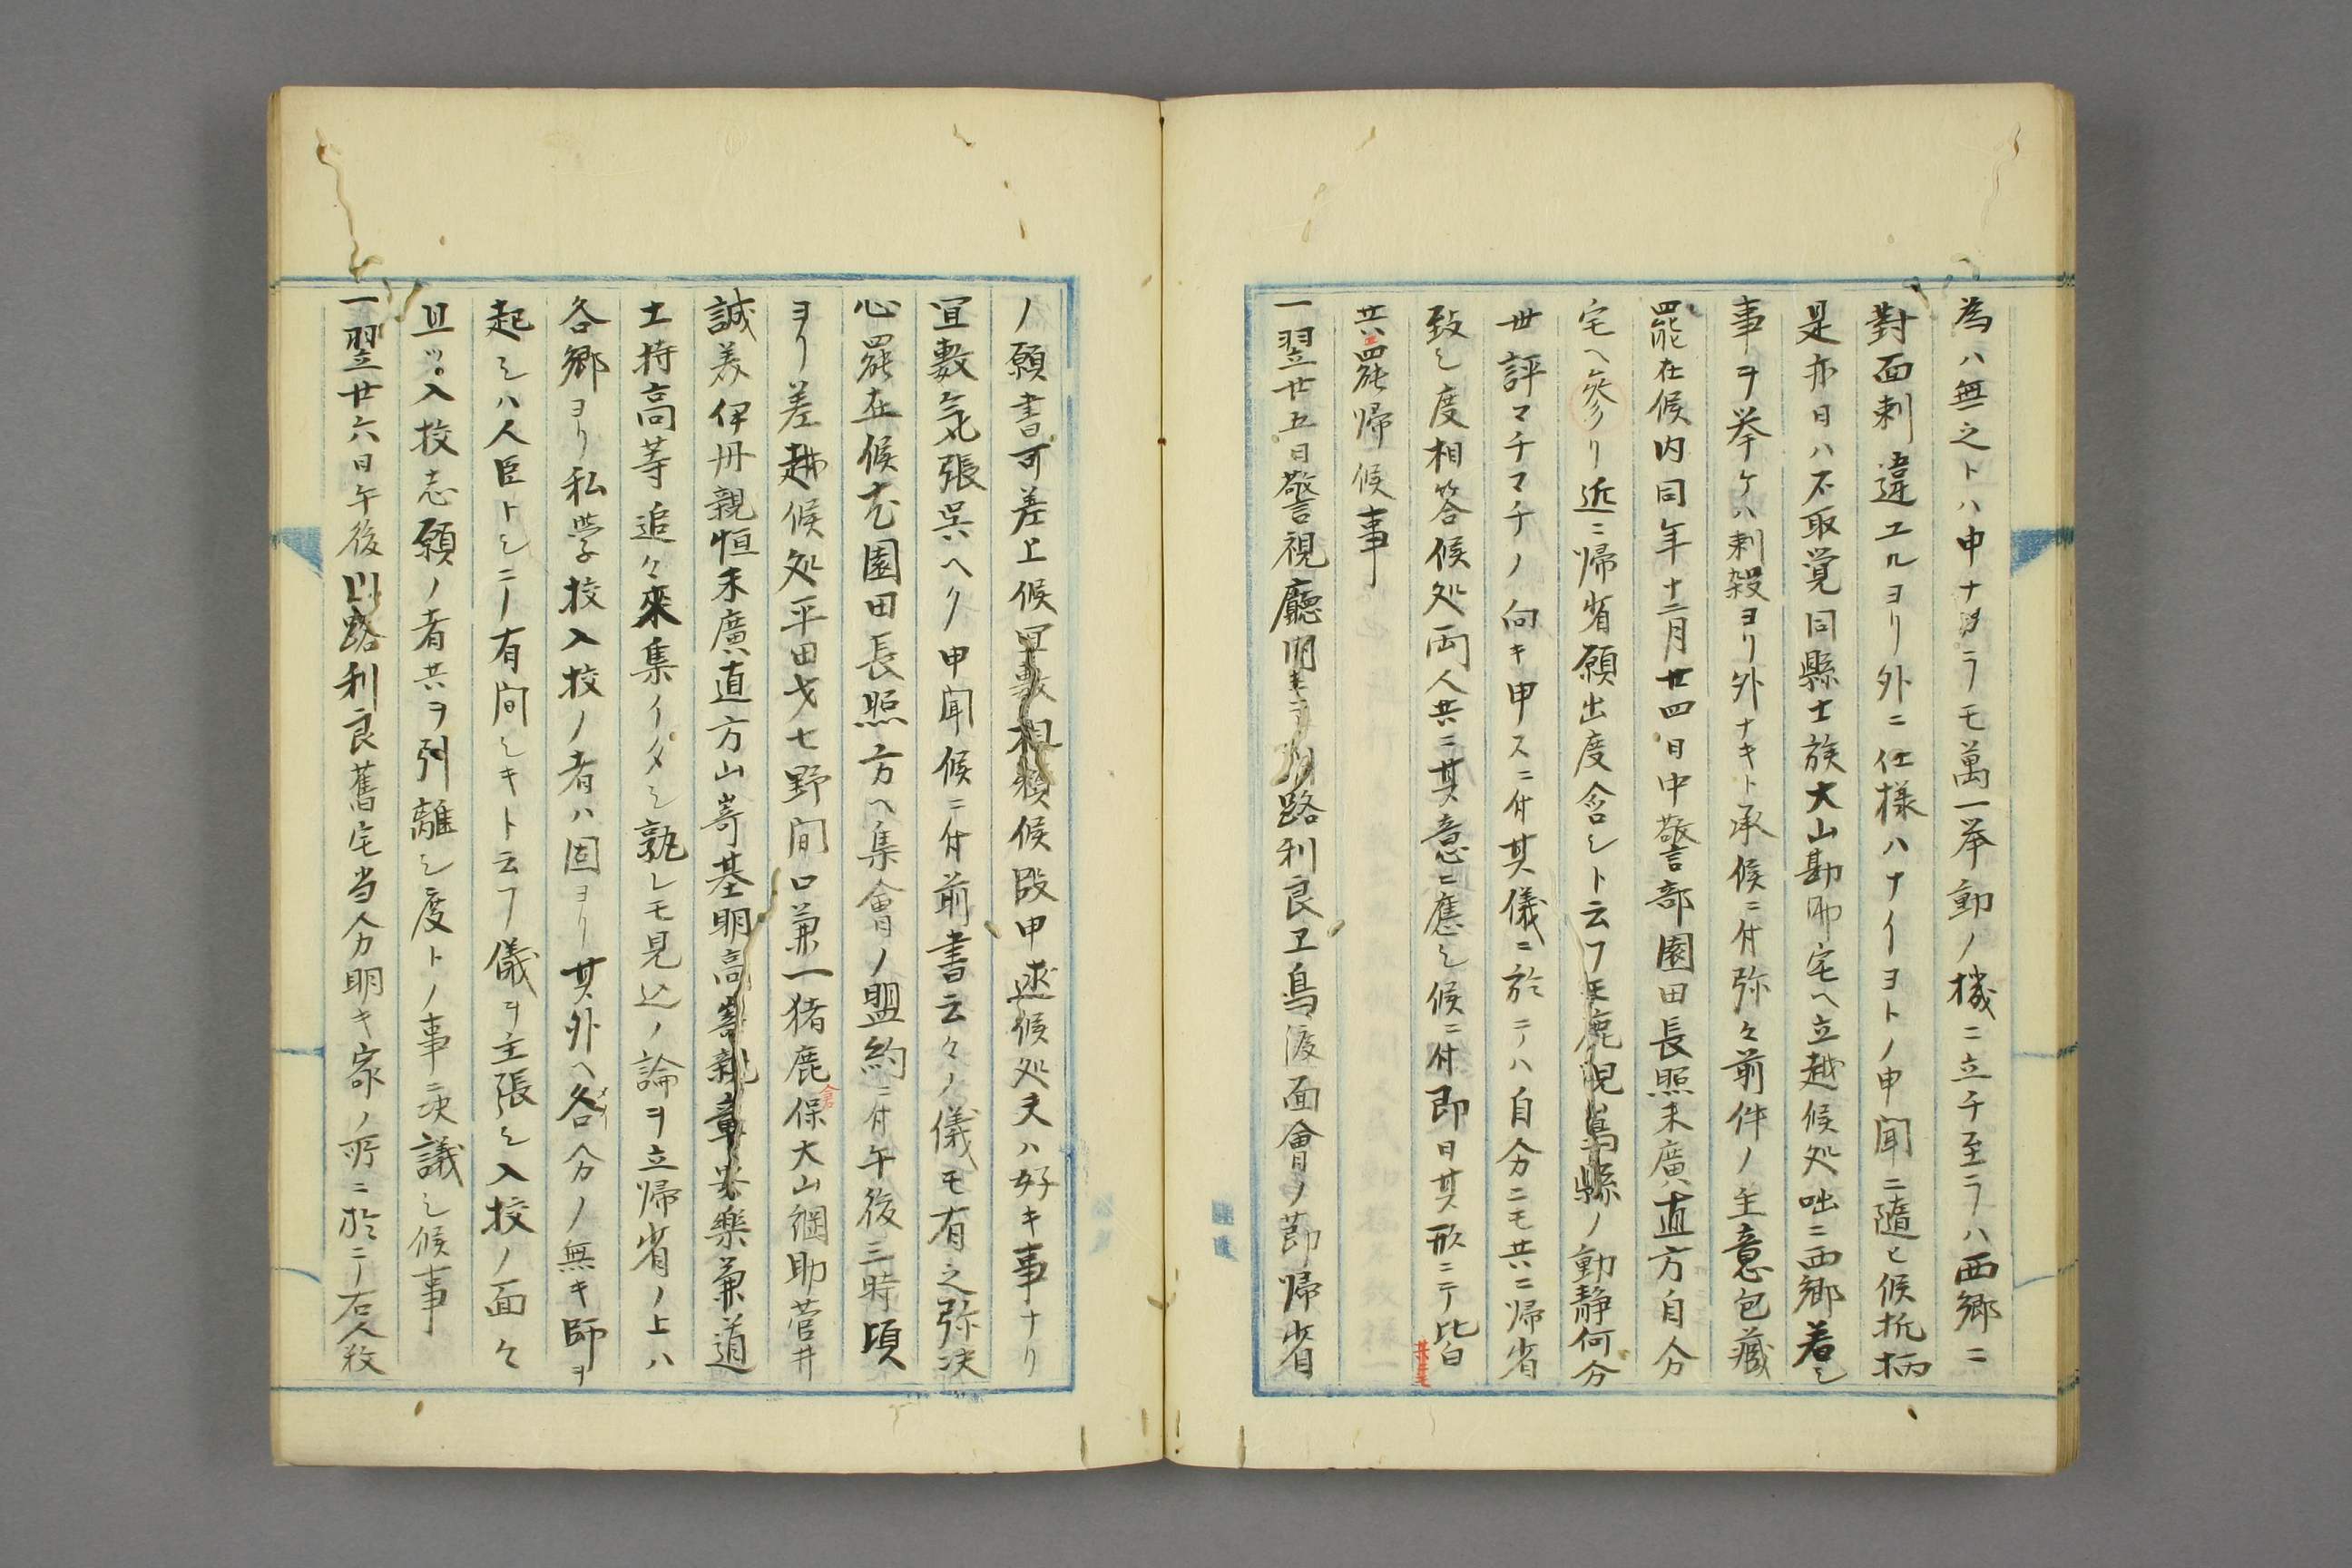 為ハ無之トハ申ナカラモ萬一挙動ノ機ニ立チ至ラハ西郷ニ
對面刺違エルヨリ外ニ仕様ハナイヨトノ申聞ニ随ヒ候折柄
是亦日ハ不取覚同縣士族大山勘助宅ヘ立越候処咄ニ西郷着シ
事ヲ挙ケハ刺殺ヨリ外ナキト承候ニ付弥々前件ノ主意包蔵
罷在候内同年十二月廿四日中警部園田長照末廣直方自分
宅ヘ参リ近ニ帰省願出度含シト云フモ鹿児島縣ノ動静何分
世評マチマチノ向キ申スニ付其儀ニ於テハ自分ニモ共ニ帰省
致シ度相答候処両人共ニ其意ニ應シ候ニ付即日其形ニテ皆
共ニ罷帰候事
一翌廿五日警視廳ニテ川路利良ヱ鳥渡面會ノ節帰省
ノ願書可差上候宜敷相頼候段申述候処夫ハ好キ事ナリ
宜敷気張呉ヘク申聞候ニ付前書云々ノ儀モ有之弥決
心罷在候尤園田長照方ヘ集會ノ盟約ニ付午後三時頃
ヨリ差越候処平田才七野間口兼一猪鹿倉保大山綱助菅井
誠美伊丹親恒末廣直方山嵜基明高嵜親章安楽兼道
土持高等追々來集イタシ孰レモ見込ノ論ヲ立帰省ノ上ハ
各郷ヨリ私学校入校ノ者ハ固ヨリ其外ヘ各分ノ無キ師ヲ
起シハ人臣トシテ有間シキト云フ儀ヲ主張シ入校ノ面々
且ツ入校志願ノ者共ヲ引離シ度トノ事ニ決議シ候事
一翌廿六日午後川路利良舊宅当分明キ家ノ所ニ於テ右人数